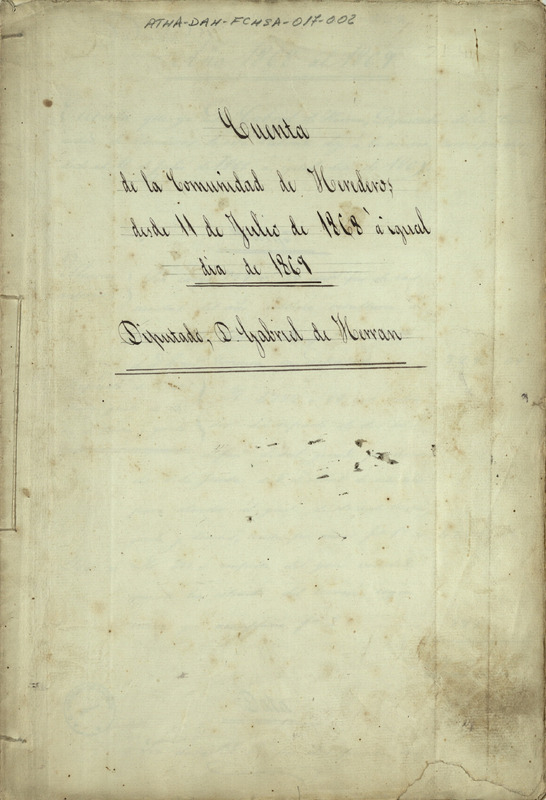 ATHA-DAH-FCHSA-017-002
Cuenta
de la Comunidad de Herederos
desde 11 de Julio de 1868 à igual
dia de 1869
Diputado, D. Gabriel de Herran